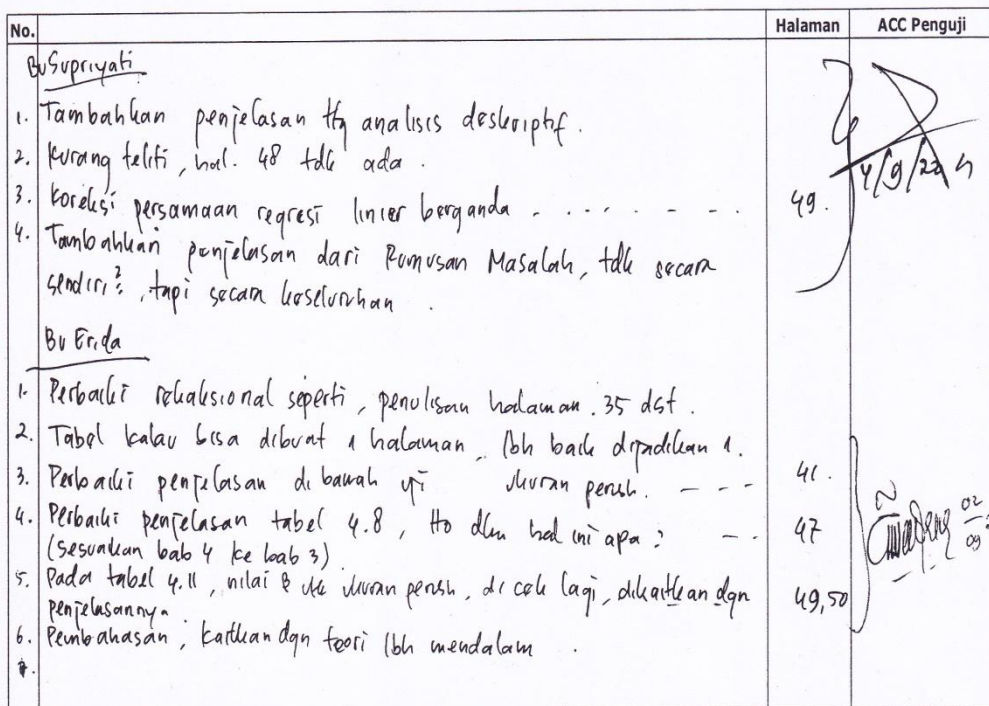 No. Halaman ACC Penguji
Bu Supriyati
1. Tambahkan penjelasan ttg analisis deskriptif.
2. Kurang teliti, hal. 48 tdk ada.
3. Koreksi persamaan regresi linier berganda . . . . - - . 49.
4/9/22
4. Tambahkan penjelasan dari Rumusan Masalah, tdk secara
sendiri², tapi secara keseluruhan.
Bu Erida
1. Perbaiki redaksional seperti, penulisan halaman. 35 dst.
2. Tabel kalau bisa dibuat 1 halaman, lbh baik dijadikan 1.
3. Perbaiki penjelasan di bawah uji ukuran perush. - - - 41.
4. Perbaiki penjelasan tabel 4.8, Ho dlm hal ini apa? - - 47
(sesuaikan bab 4 ke bab 3)
02
09
5. Pada tabel 4.11, nilai B utk ukuran perush, di cek lagi, dikaitkan dgn 49,50
penjelasannya
6. Pembahasan, kaitkan dgn teori lbh mendalam.